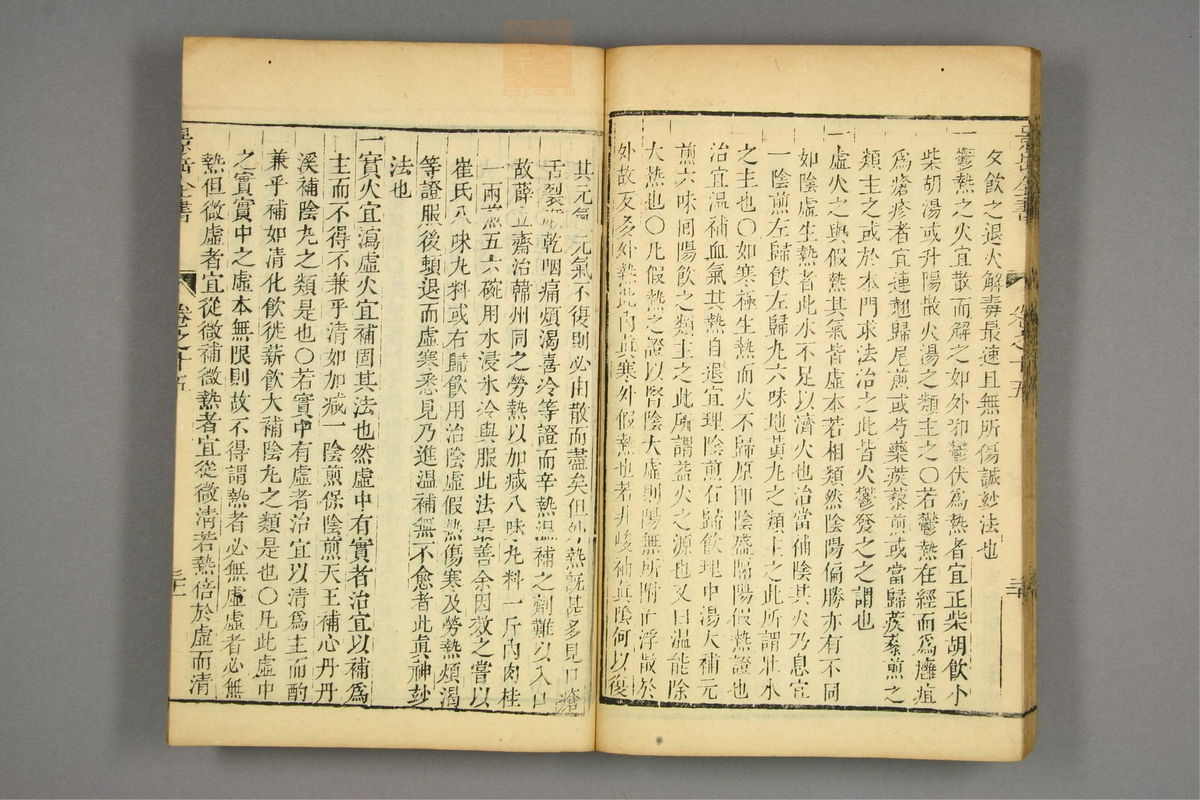 景岳全書
卷之十五
攵飲之退火解毒最速且無所傷誠玅法也
一鬱熱之火宜散而解之如外邪鬱伏為熱者宜正柴胡飲小
柴胡湯或升陽散火湯之類主之〇若鬱熱在經而爲癰疽
爲瘡疹者宜連翹歸尾煎或芍藥蒺藜煎或當歸蒺藜煎之
類主之或於本門求法治之此皆火鬱發之之謂也
一虛火之與假熱其氣皆虛本若相類然陰陽偏勝亦有不同
如陰虛生熱者此水不足以濟火也治當補陰其火乃息宜
一陰煎左歸飲左歸丸六味地黃丸之類主之此所謂壯水
之主也〇如寒極生熱而火不歸原卽陰盛隔陽假熱證也
治宜温補血氣其熱自退宜理陰煎右歸飲理中湯大補元
煎六味回陽飲之類主之此所謂益火之源也又曰温能除
大熱也〇凡假熱之證以腎陰大虛則陽無所附而浮散於
外故反多外熱此內真寒外假熱也若非峻補真陰何以復
其元氣元氣不復則必由散而盡矣但外熱旣甚多見口瘡
舌裂喉乾咽痛煩渴喜冷等證而辛熱温補之劑難以入口
故薛立齋治韓州同之勞熱以加减八味丸料一斤內肉桂
一兩煎五六碗用水浸氷冷與服此法最善余因效之嘗以
崔氏八味丸料或右歸飲用治陰虛假熱傷寒及勞熱煩渴
等證服後頓退而虛寒悉見乃進温補無不愈者此真神玅
法也
一實火宜瀉虛火宜補固其法也然虛中有實者治宜以補爲
主而不得不兼乎清如加减一陰煎保陰煎天王補心丹丹
溪補陰丸之類是也〇若實中有虛者治宜以清爲主而酌
兼乎補如清化飲徙薪飲大補陰丸之類是也〇凡此虛中
之實實中之虛本無限則故不得謂熱者必無虛虛者必無
熱但微虛者宜從微補微熱者宜從微清若熱倍於虛而清
景岳全書
卷之十五